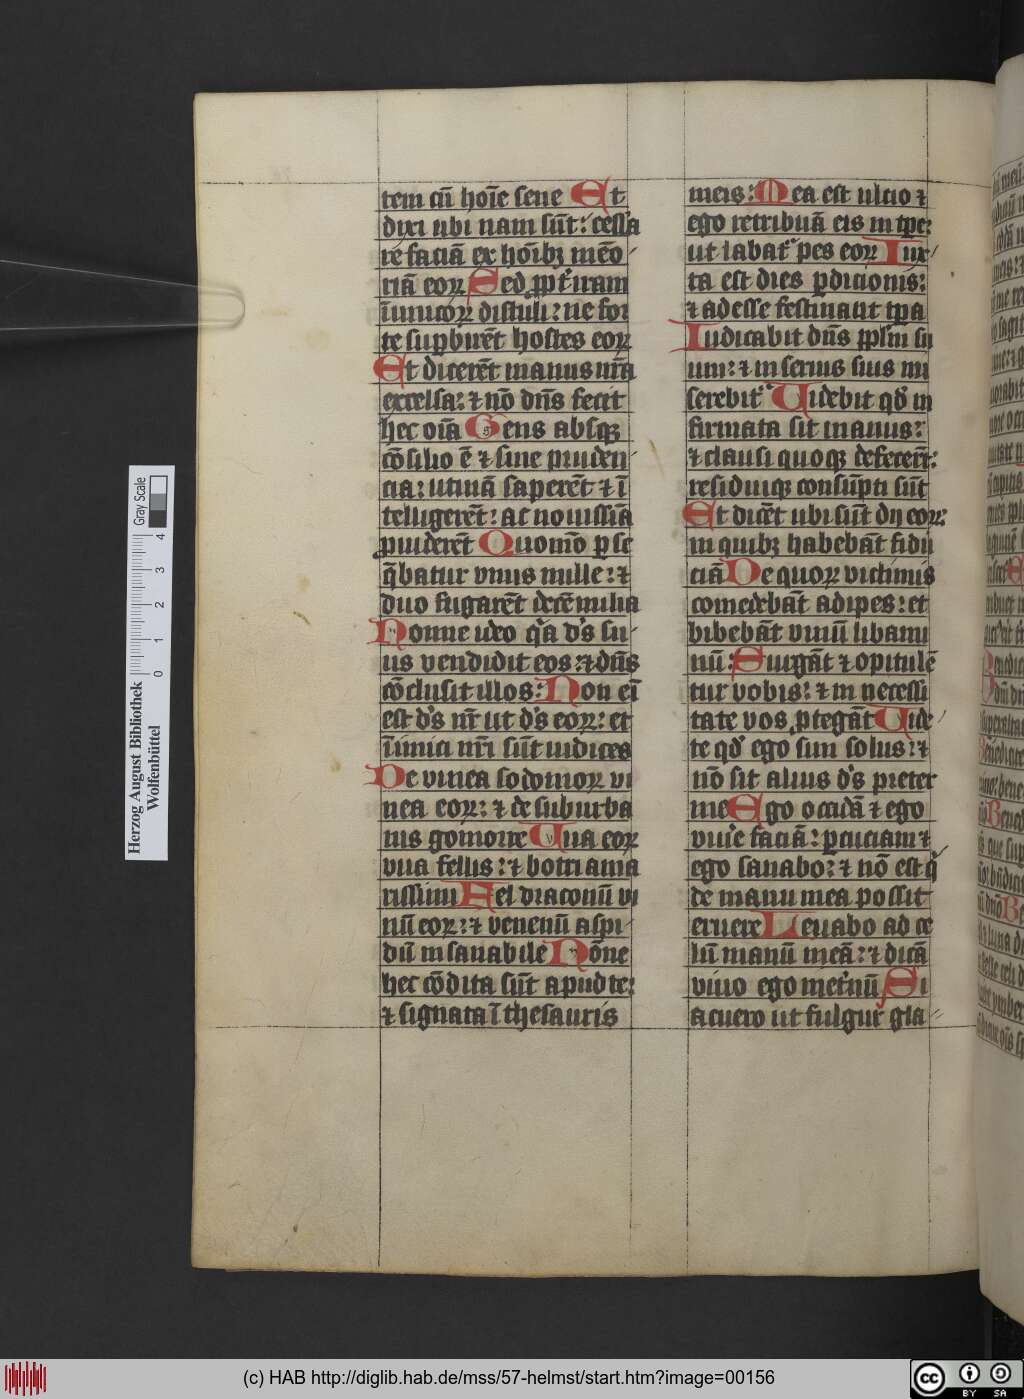 tem cū hoīe sene Et
dixi ubi nam sūt: cessa
re faciā ex hoībꝫ meō
riā eoꝝ Sed ꝓpt̄ iram
īimicoꝝ distuli: ne for
te suꝑbirēt hostes eoꝝ
Et dicerēt manus nr̄a
excelsa: ⁊ nō dn̄s fecit
hec oīa Gens absqꝫ
cōsilio ē ⁊ sine pruden
cia: utinā saperēt ⁊ ī
telligerēt: ac nouissīa
ꝓuiderēt Quomō ꝑse
q̄batur vnus mille: ⁊
duo fugarēt decē milia
Nonne ideo q̇a d's su
us vendidit eos: ⁊ dn̄s
cōclusit illos: Non eī
est d's nr̄ ut d's eoꝝ: et
īimici nr̄i sūt iudices
De vinea sodomoꝝ vi
nea eoꝝ: ⁊ de suburba
nis gomorre Uua eoꝝ
vua fellis: ⁊ botri ama
rissimi Fel draconū vi
nū eoꝝ: ⁊ venenū aspi
dū insanabile Nōne
hec cōdita sūt apud te:
⁊ signata ī thesauris
meis: Mea est ulcio ⁊
ego retribuā eis in tꝑe:
ut labat᷑ pes eoꝝ Iux
ta est dies ꝑdicionis:
⁊ adesse festinant tꝑa
Iudicabit dn̄s ꝓplm̄ su
um: ⁊ in seruis suis mi
serebit᷑ Uidebit qď in
firmata sit manus:
⁊ clausi quoqꝫ defecerūt:
residuiqꝫ consūpti sūt
Et dicēt ubi sūt dij eoꝝ:
in quibꝫ habebāt fidu
ciā De quoꝝ victimis
comedebāt adipes: et
bibebāt vinū libami
nū: Surgāt ⁊ opitulē
tur vobis: ⁊ in necessi
tate vos ꝓtegāt Uide
te qď ego sim solus: ⁊
nō sit alius d's preter
me Ego occidā ⁊ ego
viu'e faciā: ꝑcuciam ⁊
ego sanabo: ⁊ nō est q̇
de manu mea possit
eruere Leuabo ad ce
lū manū meā: ⁊ dicā
viuo ego inet'nū Si
acuero ut fulgur gla
Herzog August Bibliothek
Wolfenbüttel
Gray Scale
0 1 2 3 4
(c) HAB http://diglib.hab.de/mss/57-helmst/start.htm?image=00156
cc BY SA